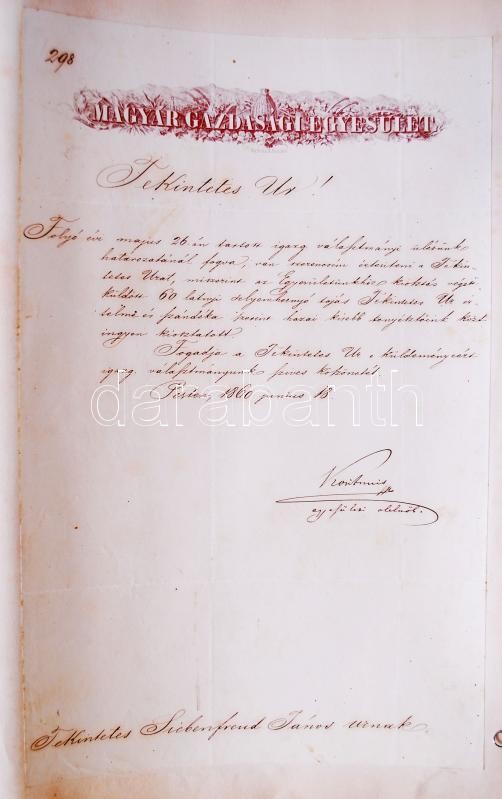 298
MAGYAR GAZDASÁGI EGYESÜLET
Tekintetes Ur!
Folyó év május 26án tartott igazg. választmányi ülésünk
határozatánál fogva, van szerencsém értesíteni a Tekin-
tetes Urat, miszerint az Egyesületünkhöz végett
küldött 60 latnyi selyemhernyó tojás Tekintetes Ur
és szándéka szerint hazai kisebb tenyésztőink közt
ingyen kiosztatott.
Fogadja a Tekintetes Ur e küldeményeért
igazg. választmányunk szives köszönetét.
Pesten, 1860 junius 18.
egyesületi alelnök.
Tekintetes Siebenfreud János urnak.
darabanth